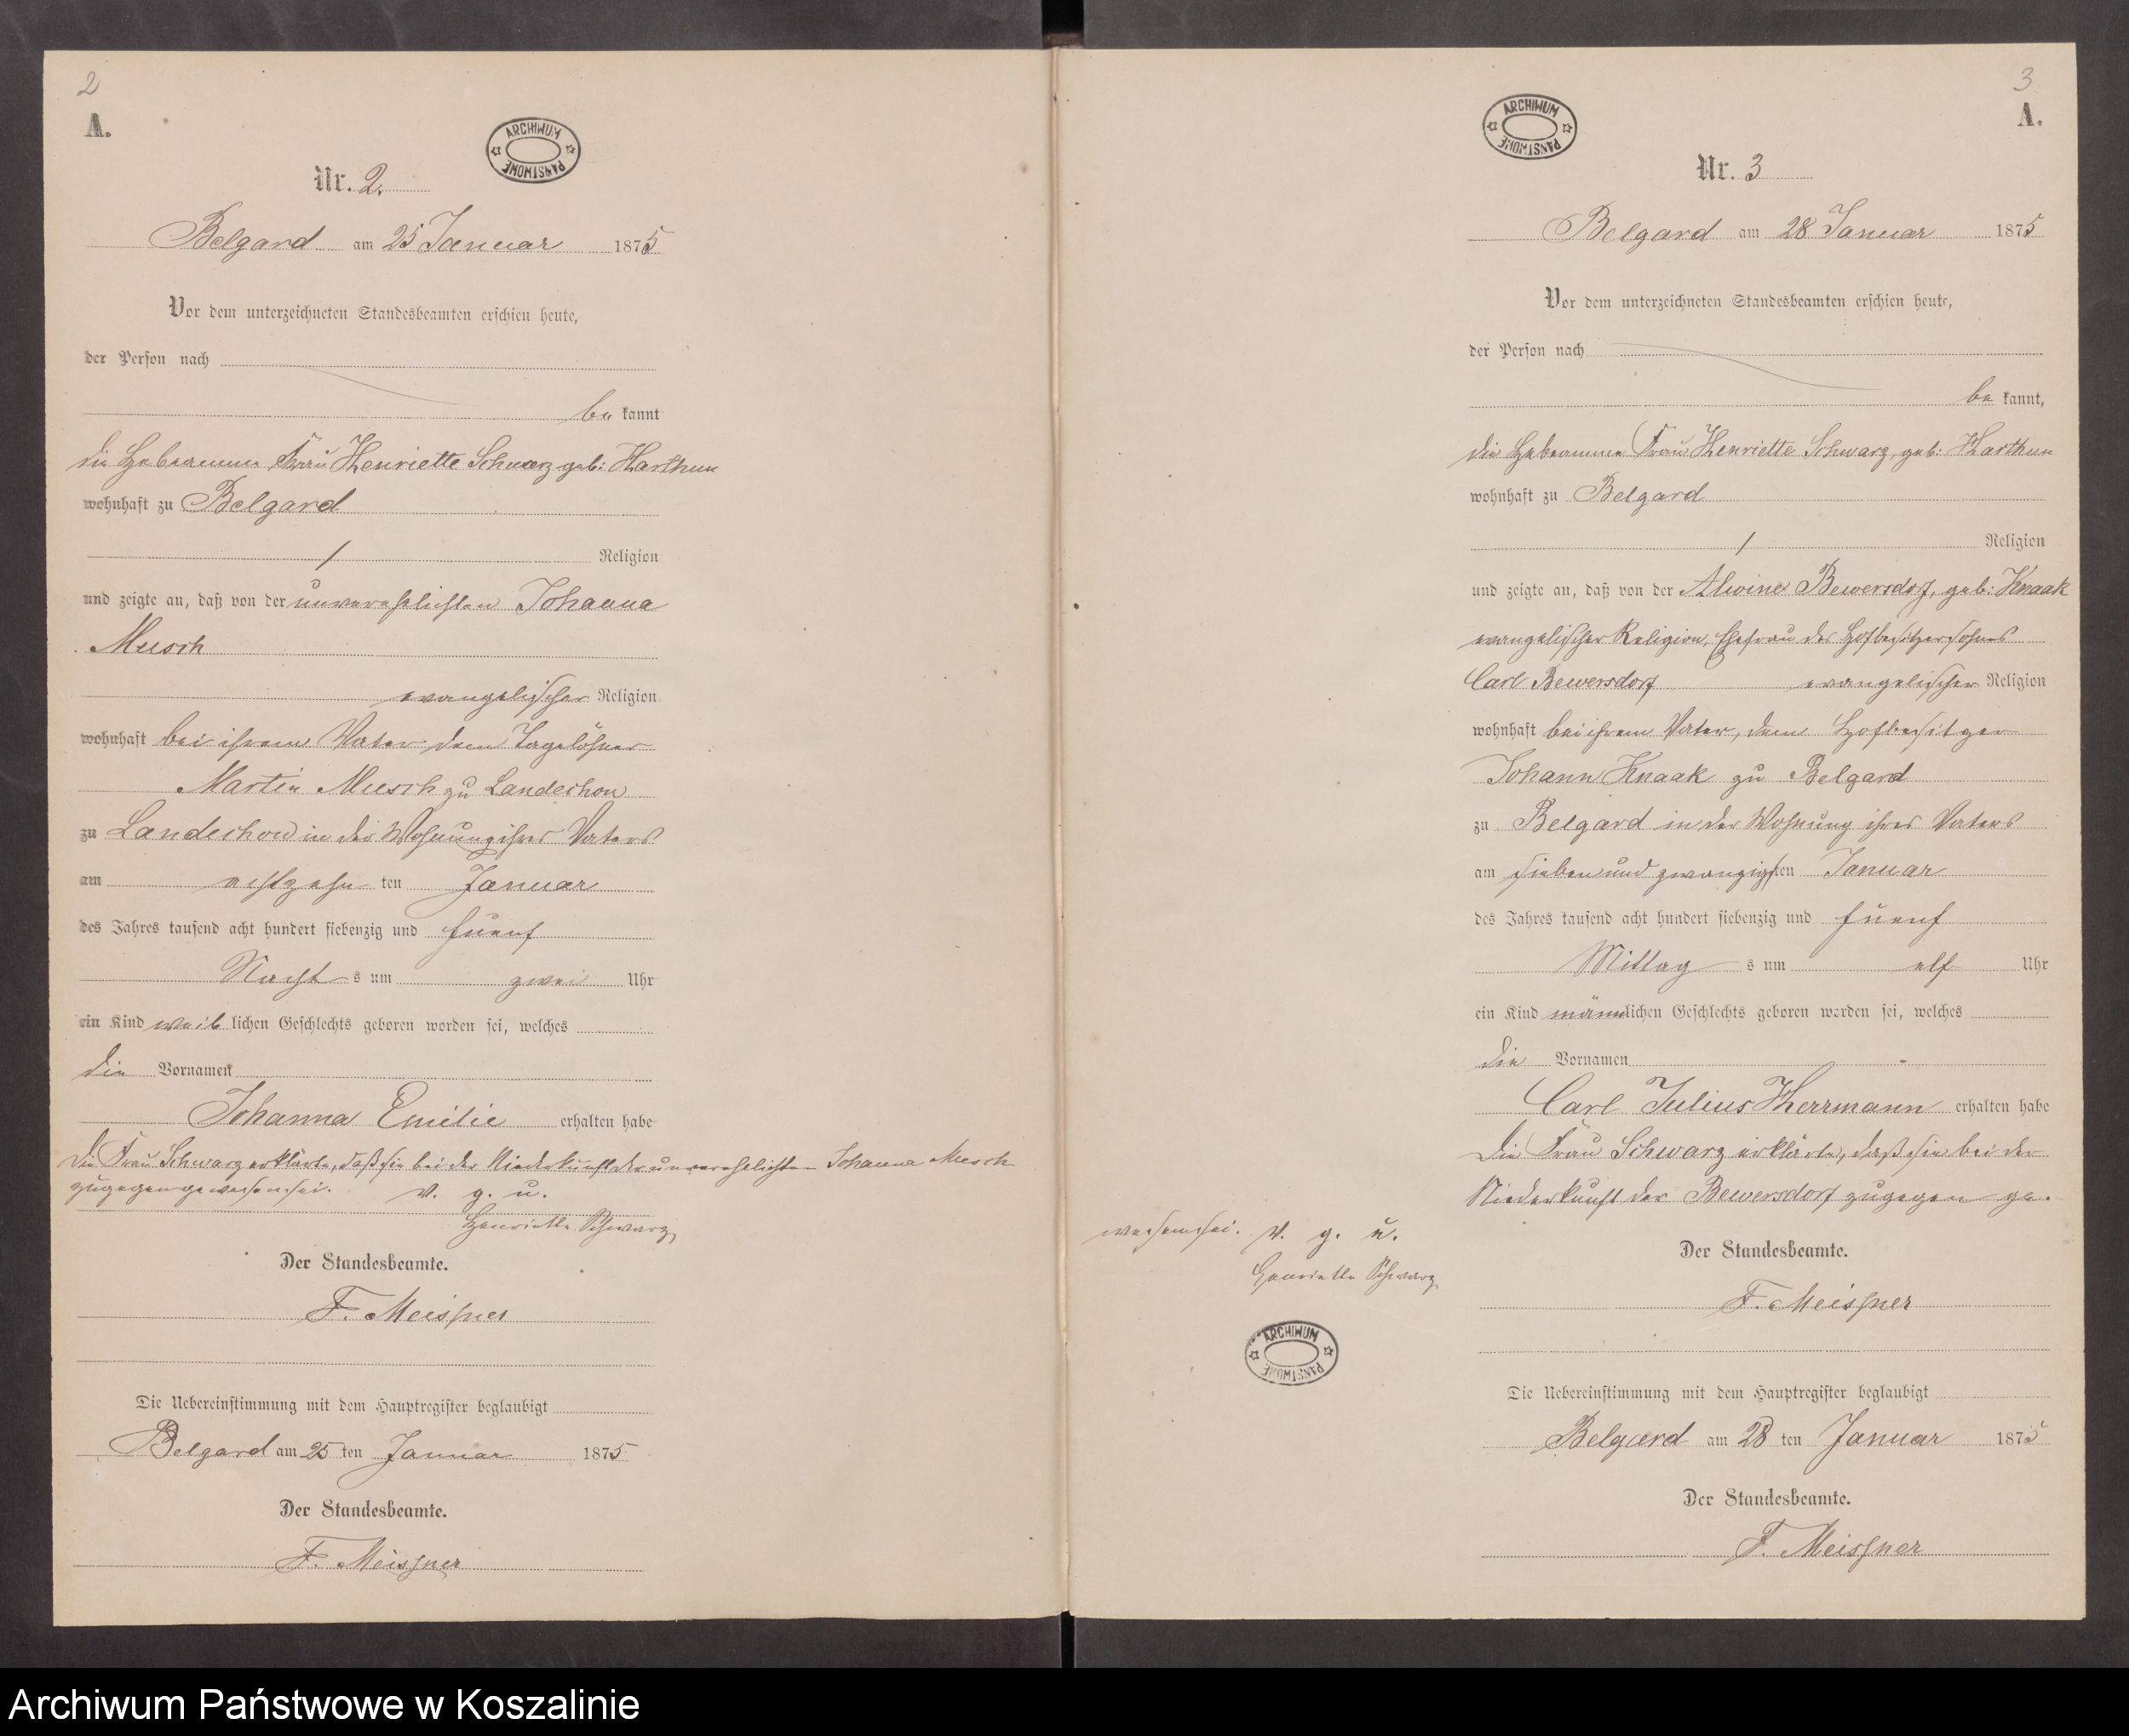 2
A.
ARCHIWUM PAŃSTWOWE
Nr. 2.
Belgard am 25 Januar 1875
Vor dem unterzeichneten Standesbeamten erschien heute,
der Person nach
be kannt
die Hebeamme Frau Henriette Schwarz geb: Harthun
wohnhaft zu Belgard
/ Religion
und zeigte an, daß von der unverehelichten Johanna
Muesch
evangelischer Religion
wohnhaft bei ihrem Vater dem Tagelöhner
Martin Muesch zu Landechow
zu Landechow in der Wohnung ihres Vaters
am achtzehn ten Januar
des Jahres tausend acht hundert siebenzig und fuenf
Nacht s um zwei Uhr
ein Kind weib lichen Geschlechts geboren worden sei, welches
die Vornamen
Johanna Emilie erhalten habe
Die Frau Schwarz erklärte, daß sie bei der Niederkunft der unverehelichten Johanna Muesch
zugegen gewesen sei. v. g. u.
Henriette Schwarz
Der Standesbeamte.
F. Meissner
Die Uebereinstimmung mit dem Hauptregister beglaubigt
Belgard am 25 ten Januar 1875
Der Standesbeamte.
F. Meissner
3
A.
ARCHIWUM PAŃSTWOWE
Nr. 3
Belgard am 28 Januar 1875
Vor dem unterzeichneten Standesbeamten erschien heute,
der Person nach
be kannt,
die Hebeamme Frau Henriette Schwarz, geb: Harthun
wohnhaft zu Belgard
/ Religion
und zeigte an, daß von der Alwine Bewersdorf, geb: Knaak
evangelischer Religion, Ehefrau des Hofbesitzersohnes
Carl Bewersdorf evangelischer Religion
wohnhaft bei ihrem Vater, dem Hofbesitzer
Johann Knaak zu Belgard
zu Belgard in der Wohnung ihres Vaters
am sieben und zwanzigsten Januar
des Jahres tausend acht hundert siebenzig und fuenf
Mittag s um elf Uhr
ein Kind männlichen Geschlechts geboren worden sei, welches
die Vornamen
Carl Julius Herrmann erhalten habe
Die Frau Schwarz erklärte, daß sie bei der
Niederkunft der Bewersdorf zugegen ge-
wesen sei. v. g. u.
Henriette Schwarz
ARCHIWUM PAŃSTWOWE
Der Standesbeamte.
F. Meissner
Die Uebereinstimmung mit dem Hauptregister beglaubigt
Belgard am 28 ten Januar 1875
Der Standesbeamte.
F. Meissner
Archiwum Państwowe w Koszalinie